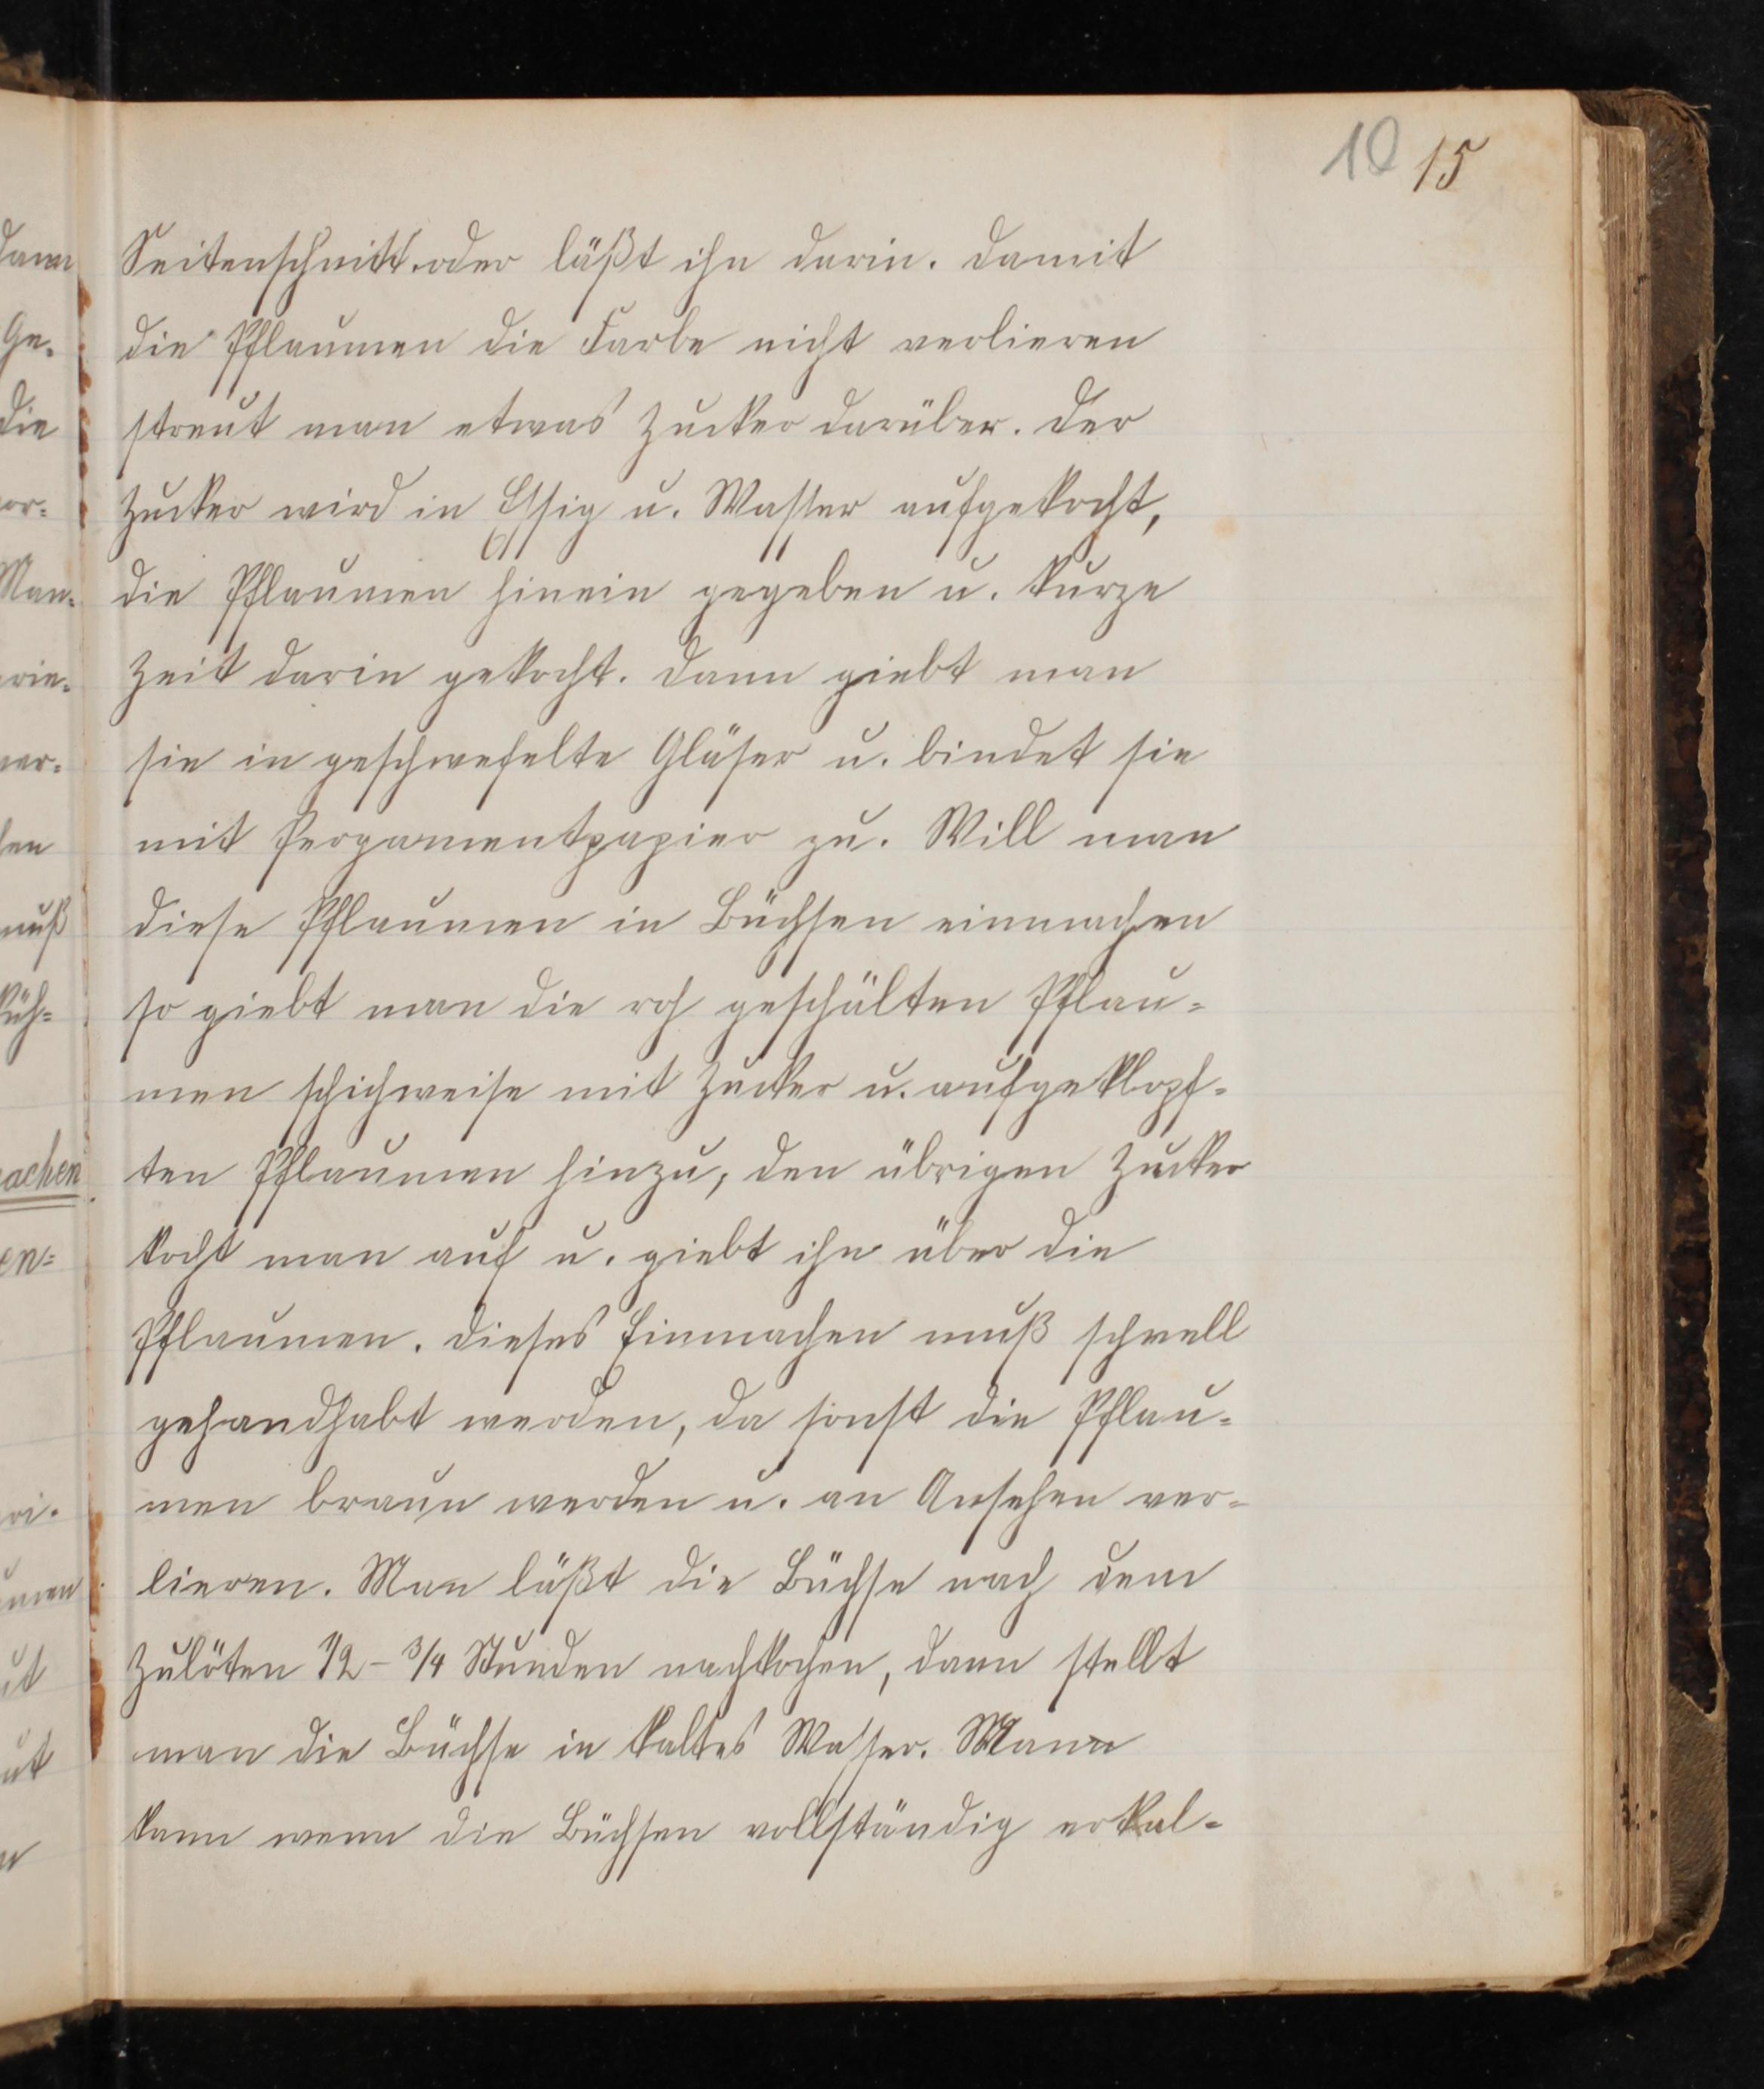 10 15
Seitenschnitt. oder läßt ihn darin. Damit
die Pflaumen die Farbe nicht verlieren
streut man etwas Zucker darüber. Der
Zucker wird in Essig u. Wasser aufgekocht,
die Pflaumen hinein gegeben u. kurze
Zeit darin gekocht. Dann giebt man
sie in geschwefelte Gläser u. bindet sie
mit Pergamentpapier zu. Will man
diese Pflaumen in Büchsen einmachen
so giebt man die roh geschälten Pflau-
men schichweise mit Zucker u. aufgeklopf-
ten Pflaumen hinzu, den übrigen Zucker
kocht man auf u. giebt ihn über die
Pflaumen. Dieses Einmachen muß schnell
gehandhabt werden, da sonst die Pflau-
men braun werden u. an Ansehen ver-
lieren. Man läßt die Büchse nach dem
Zulöten 1/2 - 3/4 Stunden nachkochen, dann stellt
man die Büchse in kaltes Wasser. Mann
kann wenn die Büchsen vollständig erkal-